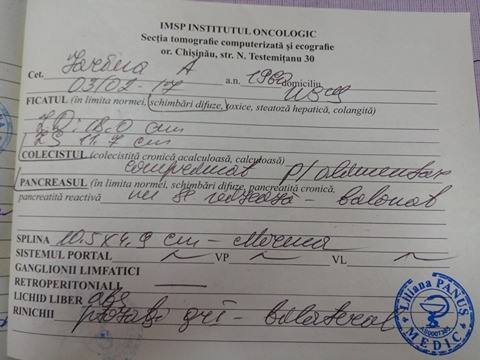 IMSP INSTITUTUL ONCOLOGIC
Secția tomografie computerizată și ecografie
or. Chișinău, str. N. Testemițanu 30
Cet. A a.n. 1960 domiciliu
03/02-17 USG
FICATUL (în limita normei, schimbări difuze, toxice, steatoză hepatică, colangită)
18.0 cm
11.7 cm
COLECISTUL (colecistită cronică acalculoasă, calculoasă)
compremat p/alimentar
PANCREASUL (în limita normei, schimbări difuze, pancreatită cronică,
pancreatită reactivă nu se - balonat
SPLINA 10.5x4.9 cm -
SISTEMUL PORTAL VP VL
GANGLIONII LIMFATICI
RETROPERITONIALI
LICHID LIBER abs
RINICHII gr I - bilateral
Liliana PANUȘ
MEDIC